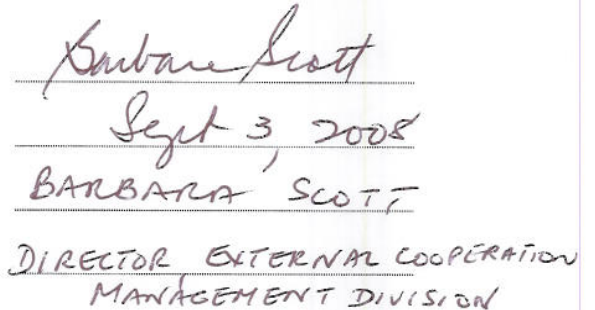 Barbara Scott
Sept 3, 2008
BARBARA SCOTT
DIRECTOR, EXTERNAL COOPERATION
MANAGEMENT DIVISION